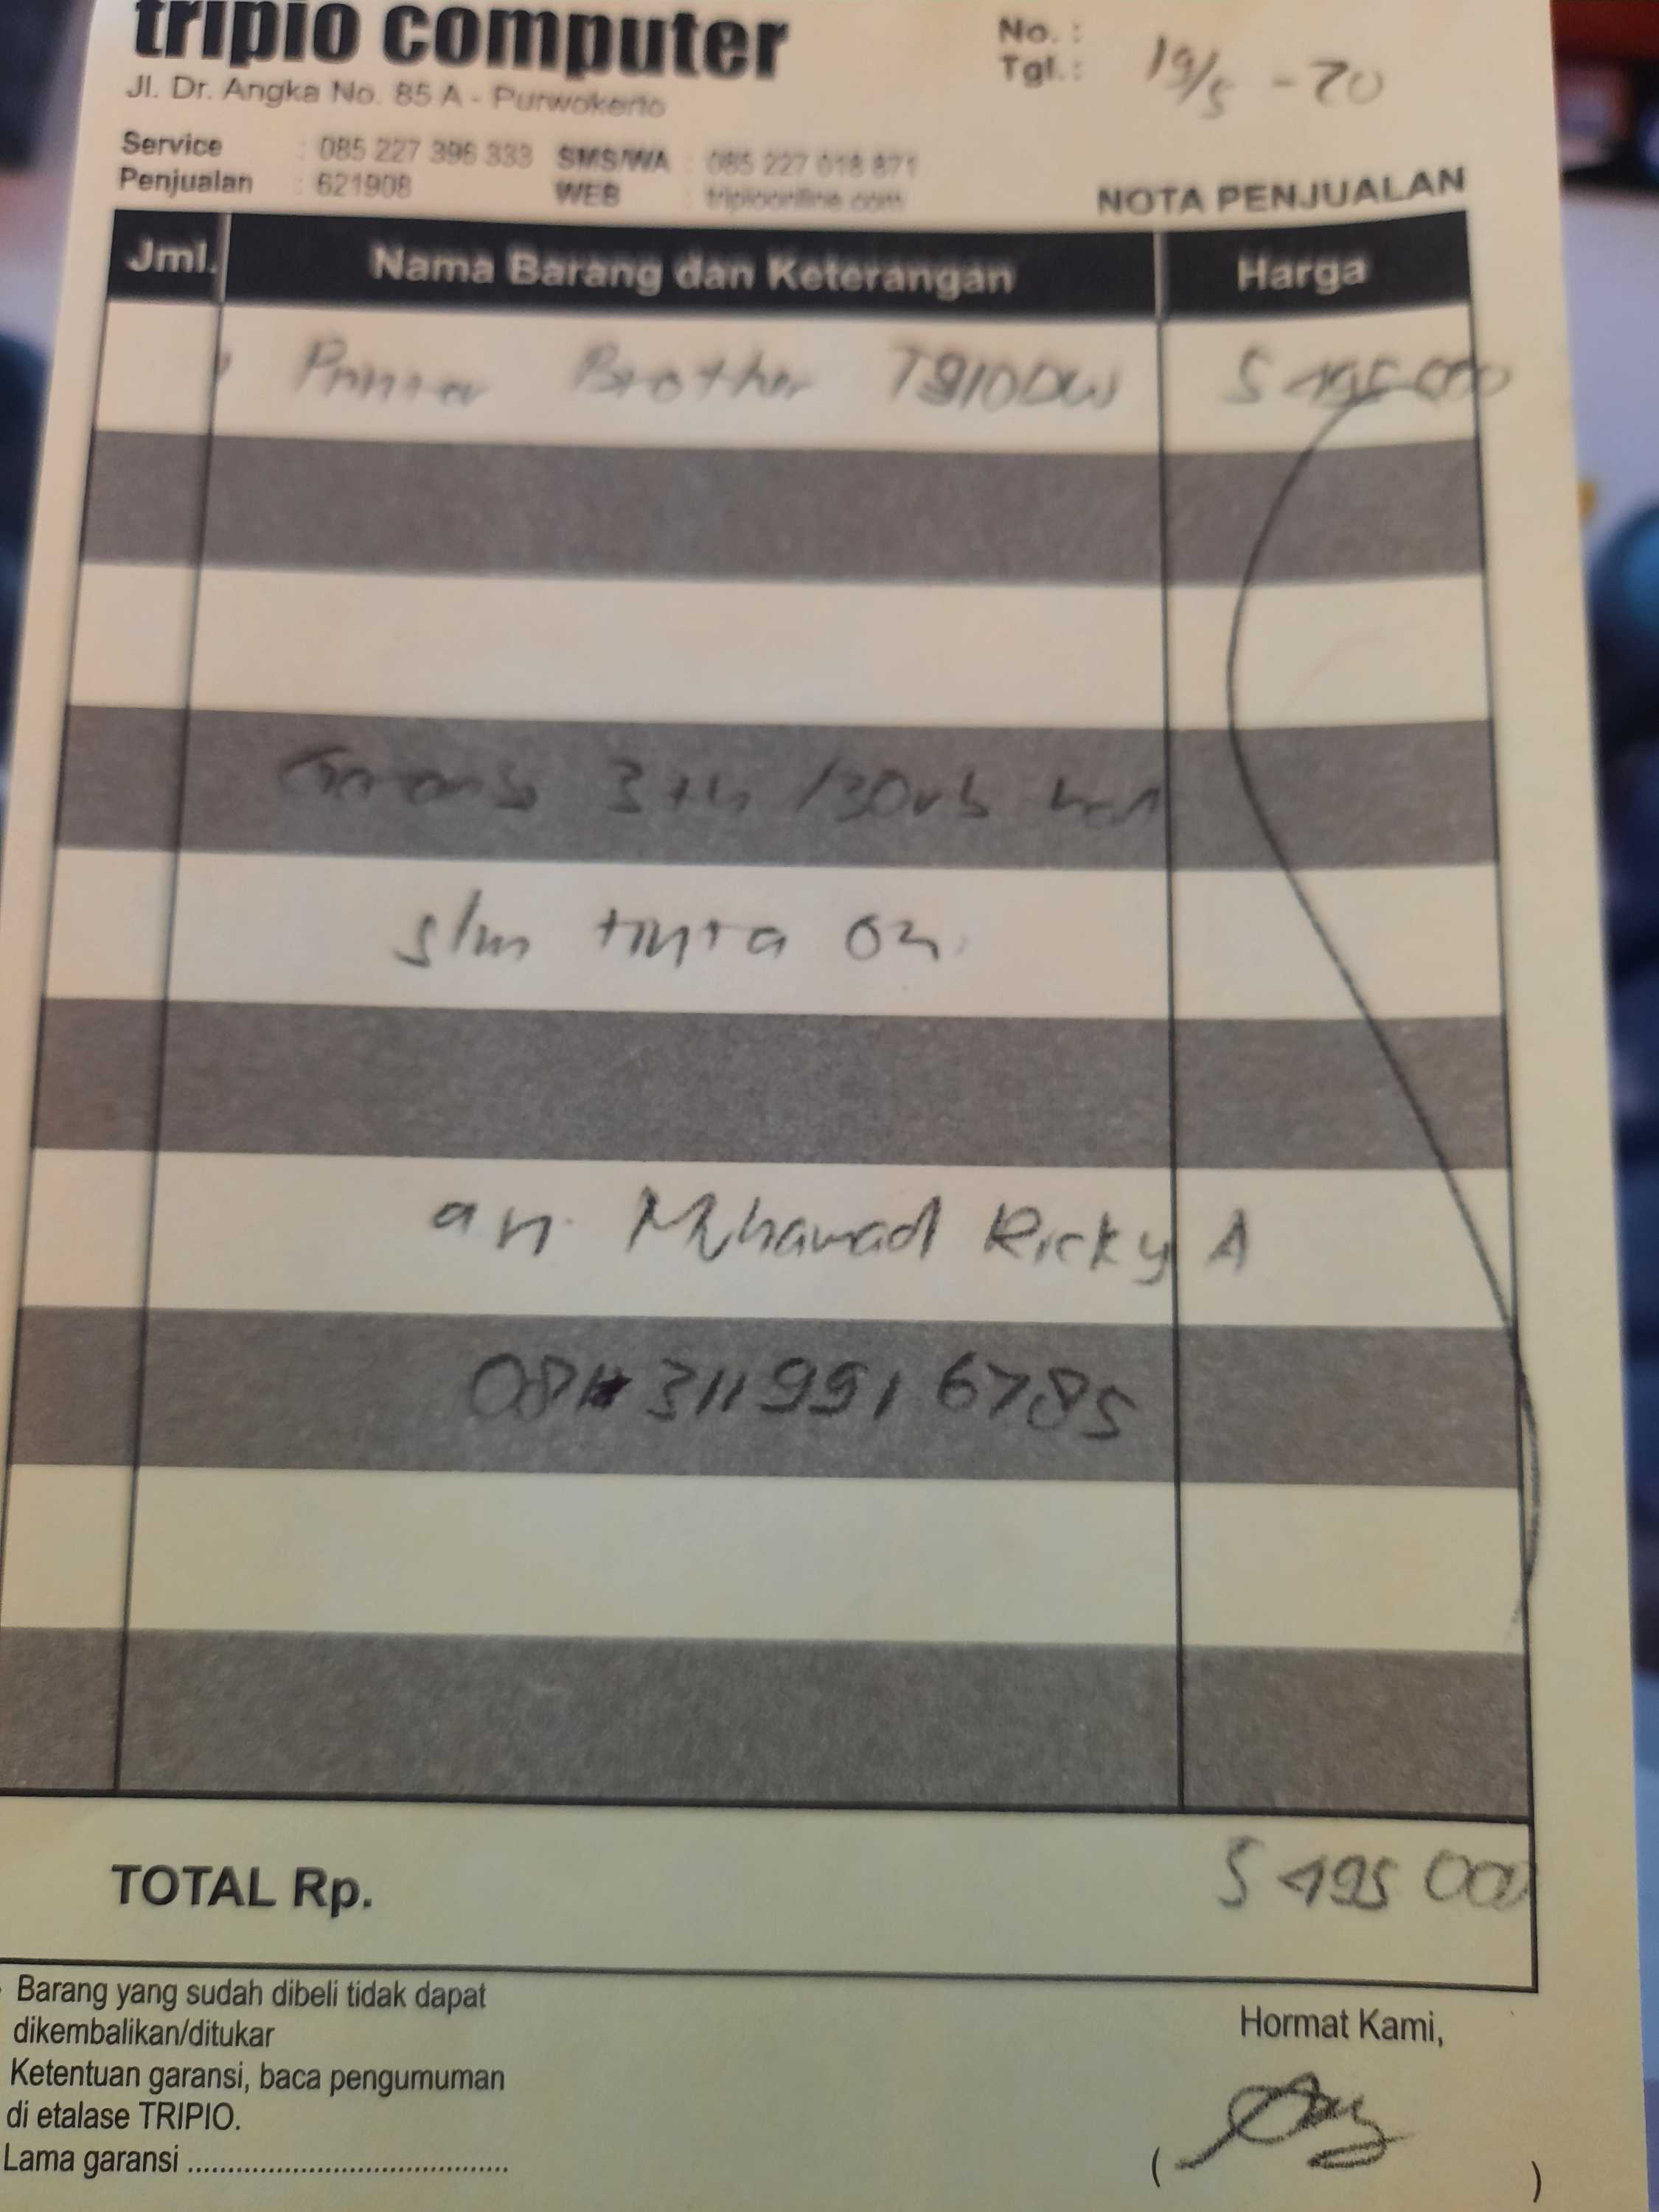 tripio computer
Jl. Dr. Angka No. 85 A - Purwokerto
No. :
Tgl. : 19/5 - 20
Service : 085 227 396 333 SMS/WA : 085 227 018 871
Penjualan : 621908 WEB : tripioonline.com
NOTA PENJUALAN
Jml. Nama Barang dan Keterangan Harga
1 Printer Brother T810DW 5 495 000
Garansi 3 th / 30 rb
slm tinta ori
an. Muhamad Ricky A
TOTAL Rp. 5 495 000
Barang yang sudah dibeli tidak dapat
dikembalikan/ditukar
Ketentuan garansi, baca pengumuman
di etalase TRIPIO.
Lama garansi ........................................
Hormat Kami,
( )